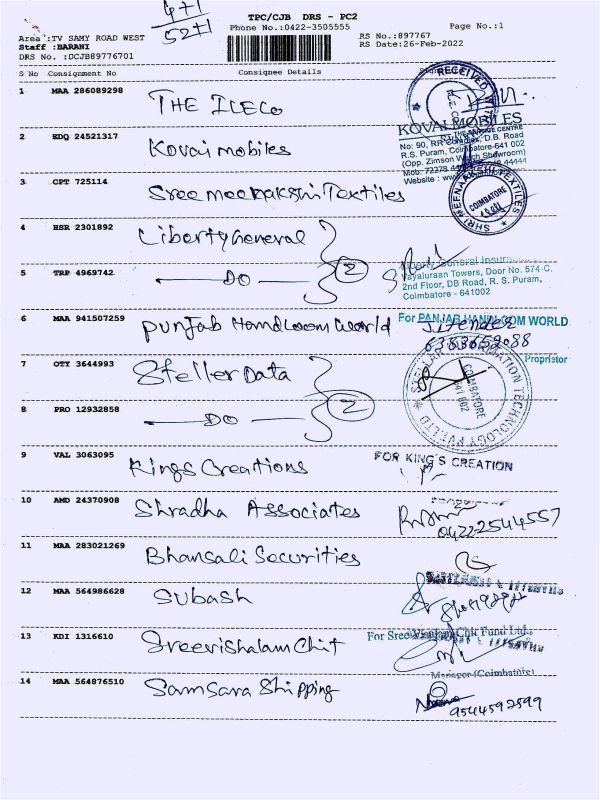 4+1
52+1
TPC/CJB DRS - PC2
Phone No.:0422-3505555
Page No.:1
Area :TV SAMY ROAD WEST
Staff :BARANI
DRS No. :DCJB89776701
RS No.:897767
RS Date:26-Feb-2022
S No Consignment No Consignee Details
1 MAA 286089298 THE ILECO
RECEIVED
2 EDQ 24521317 Kovai mobiles
KOVAI MOBILES
No: 90, RR Complex, D.B. Road
R.S. Puram, Coimbatore-641 002
(Opp. Zimson Watch Showroom)
3 CPT 725114 Sree meenakshi Textiles
SHRI MEENAAKSHI TEXTILES
COIMBATORE
4 HSR 2301892 Liberty General
5 TRP 4969742 DO
2
Liberty General Insurance
Vayaluraan Towers, Door No. 574-C,
2nd Floor, DB Road, R. S. Puram,
Coimbatore - 641002
6 MAA 941507259 Punjab Handloom World
For PANJAB HANDLOOM WORLD
Jitender
6383652088
Proprietor
7 OTY 3644993 Steller Data
8 PRO 12932858 DO
2
STELLAR INFORMATION TECHNOLOGY PVT. LTD
COIMBATORE
641 002
9 VAL 3063095 Kings Creations
FOR KING'S CREATION
10 AMD 24370908 Shradha Associates
0422-2544557
11 MAA 283021269 Bhansali Securities
12 MAA 564986628 Subash
13 KDI 1316610 Sreevishalam Chit
For Sree Visalam Chit Fund Ltd.,
Manager (Coimbatore)
14 MAA 564876510 Samsara Shipping
9544592599